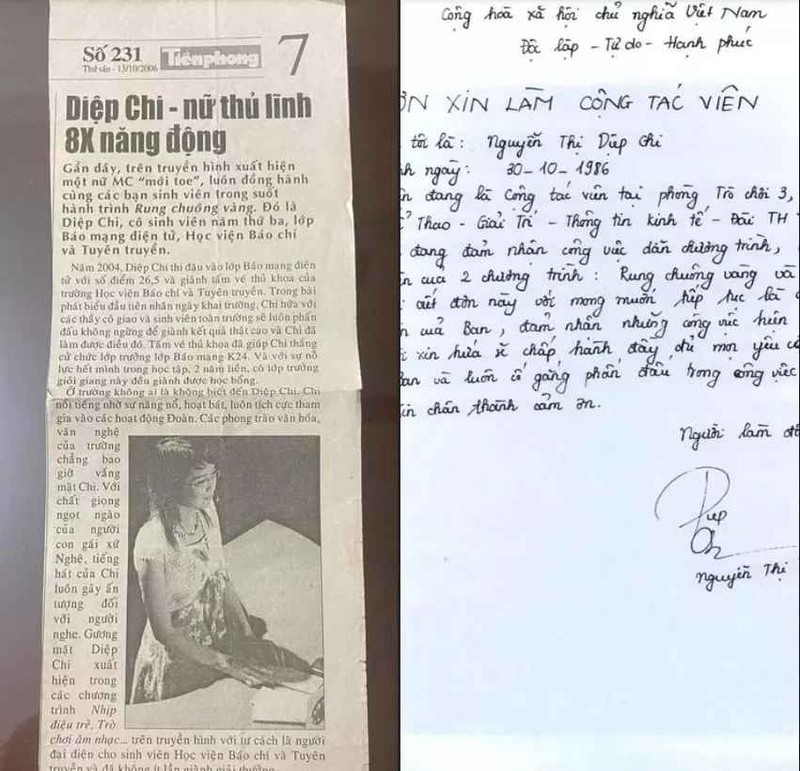 Số 231
Thứ sáu - 13/10/2006
Tiền phong
7
Diệp Chi - nữ thủ lĩnh
8X năng động
Gần đây, trên truyền hình xuất hiện
một nữ MC “mới toe”, luôn đồng hành
cùng các bạn sinh viên trong suốt
hành trình Rung chuông vàng. Đó là
Diệp Chi, cô sinh viên năm thứ ba, lớp
Báo mạng điện tử, Học viện Báo chí
và Tuyên truyền.
Năm 2004, Diệp Chi thi đậu vào lớp Báo mạng điện
tử với số điểm 26,5 và giành tấm vé thủ khoa của
trường Học viện Báo chí và Tuyên truyền. Trong bài
phát biểu đầu tiên nhân ngày khai trường, Chi hứa với
các thầy cô giao và sinh viên toàn trường sẽ luôn phấn
đấu không ngừng để giành kết quả thật cao và Chi đã
làm được điều đó. Tấm vé thủ khoa đã giúp Chi thắng
cử chức lớp trưởng lớp Báo mạng K24. Và với sự nỗ
lực hết mình trong học tập, 2 năm liền, cô lớp trưởng
giỏi giang này đều giành được học bổng.
Ở trường không ai là không biết đến Diệp Chi. Chi
nổi tiếng nhờ sự năng nổ, hoạt bát, luôn tích cực tham
gia vào các hoạt động Đoàn. Các phong trào văn hóa,
văn nghệ
của trường
chẳng bao
giờ vắng
mặt Chi. Với
chất giọng
ngọt ngào
của người
con gái xứ
Nghệ, tiếng
hát của Chi
luôn gây ấn
tượng đối
với người
nghe. Gương
mặt Diệp
Chi xuất
hiện trong
các chương
trình Nhịp
điệu trẻ, Trò
chơi âm nhạc... trên truyền hình với tư cách là người
đại diện cho sinh viên Học viện Báo chí và Tuyên
truyền và đã không ít lần giành giải thưởng
Cộng hoà xã hội chủ nghĩa Việt Nam
Độc lập - Tự do - Hạnh phúc
ƠN XIN LÀM CỘNG TÁC VIÊN
tôi là: Nguyễn Thị Diệp Chi
h ngày: 30-10-1986
n đang là cộng tác viên tại phòng Trò chơi 3,
ể Thao - Giải Trí - Thông tin kinh tế - Đài TH
đang đảm nhận công việc dẫn chương trình,
n của 2 chương trình: Rung chuông vàng và
viết đơn này với mong muốn tiếp tục là
n của Ban, đảm nhận những công việc hiện
i xin hứa sẽ chấp hành đầy đủ mọi yêu
Ban và luôn cố gắng phấn đấu trong công việc
in chân thành cảm ơn.
Người làm đ
Diệp
Ch
Nguyễn Thị